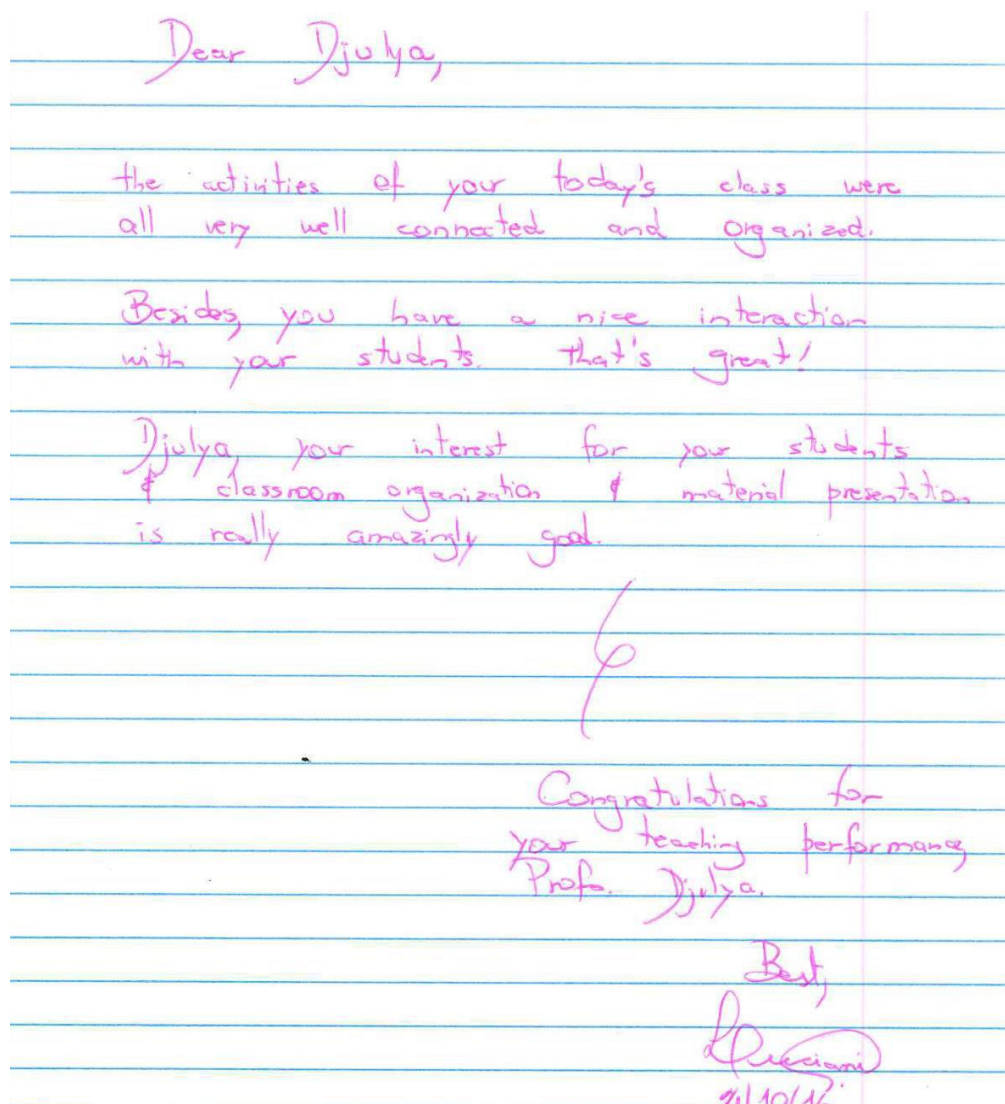 Dear Djulya,
the activities of your today's class were
all very well connected and organized.
Besides, you have a nice interaction
with your students. That's great!
Djulya, your interest for your students
& classroom organization & material presentation
is really amazingly good.
Congratulations for
your teaching performance,
Profa. Djulya.
Best,
/10/16